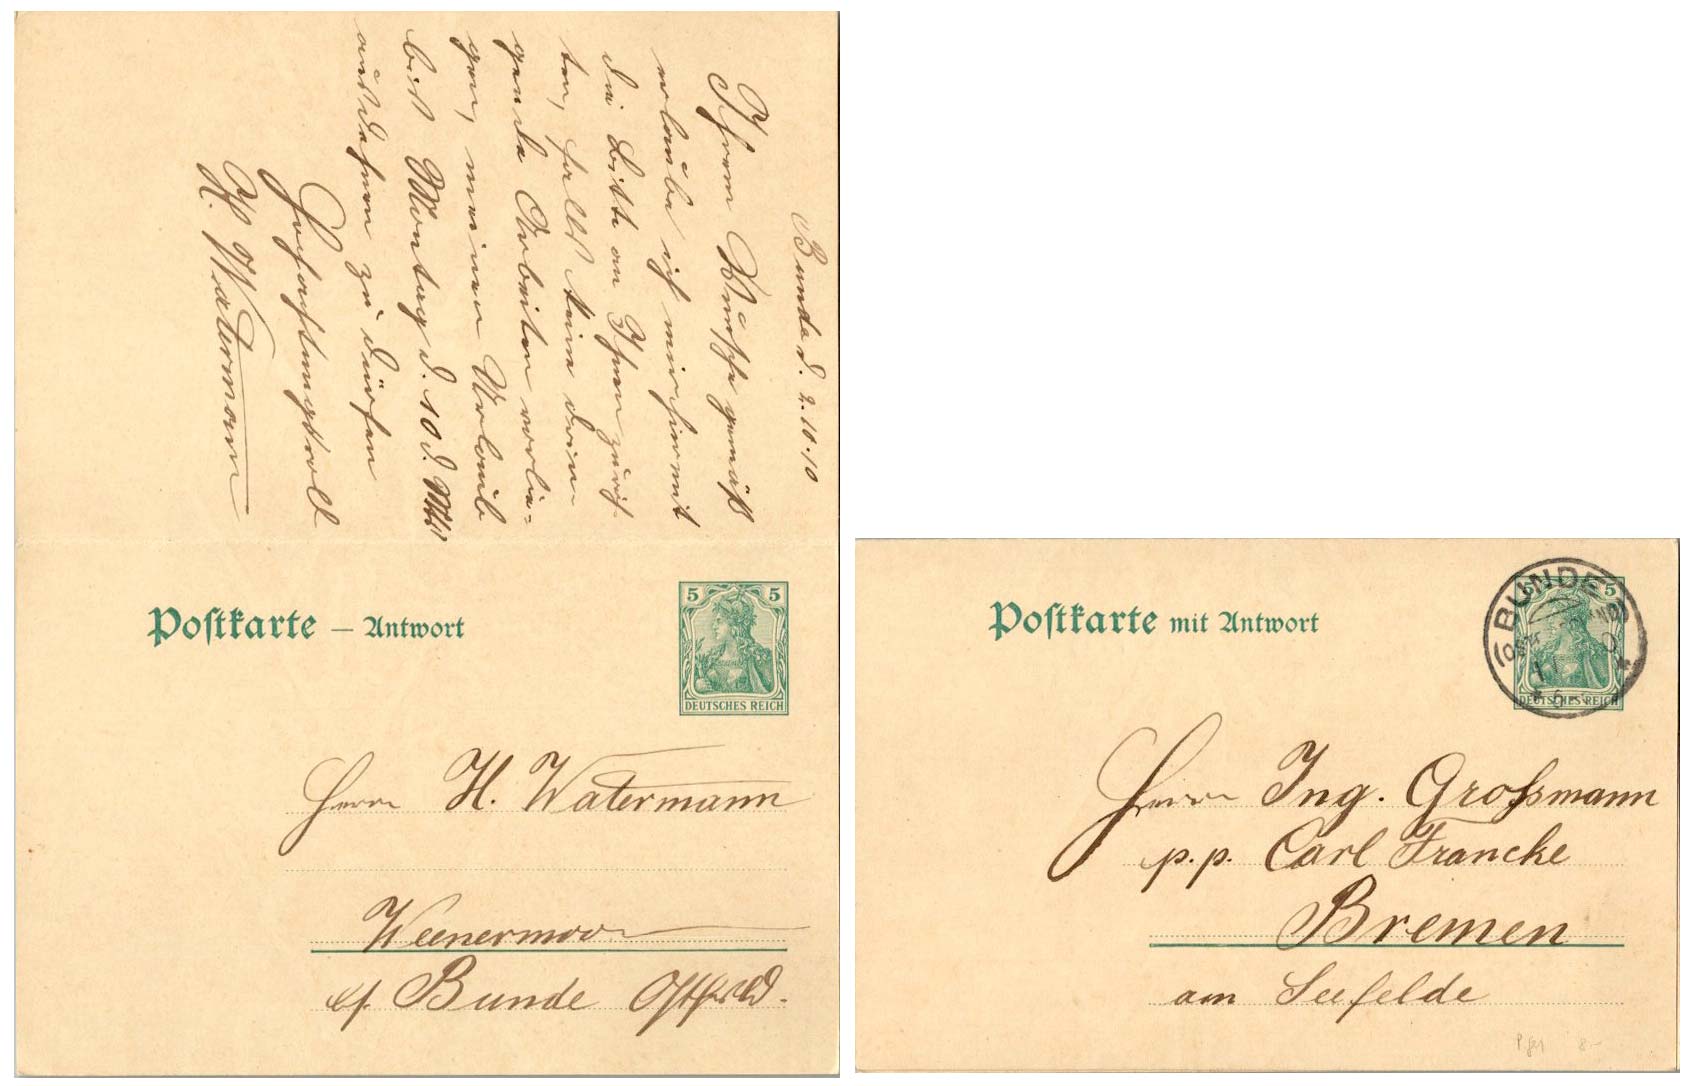 Bunde d. 2.10.10
Ihrem Wunsche gemäß
erlaube ich mir hiermit
die Bitte an Ihnen zu rich-
ten, falls keine drin-
gende Arbeiten vorlie-
gen, meinen Urlaub
bis Montag d. 10 d. Mts
ausdehnen zu dürfen
Hochachtungsvoll
H. Watermann
Postkarte – Antwort
5 5
DEUTSCHES REICH
Herrn H. Watermann
Weenermoor
bf. Bunde Ostfrsld.
Postkarte mit Antwort
5
BUNDE
DEUTSCHES REICH
Herrn Ing. Großmann
p.p. Carl Francke
Bremen
am Seefelde